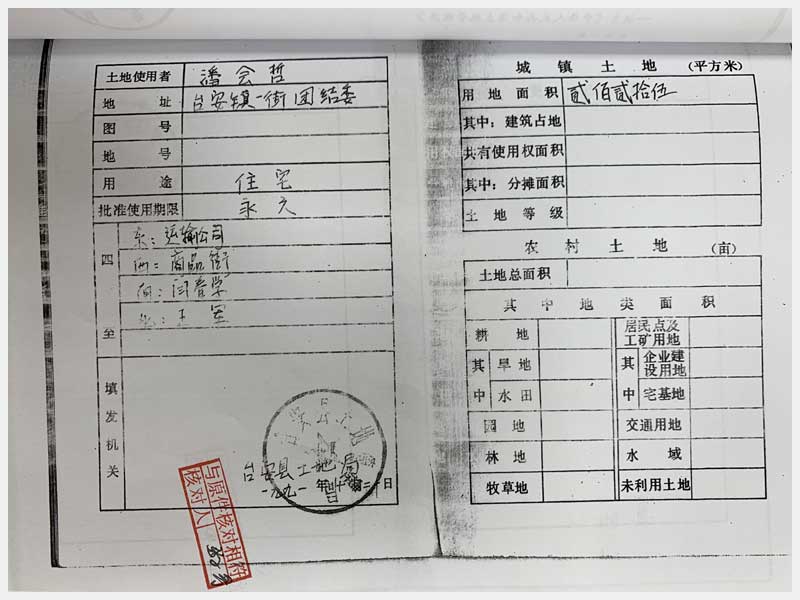 土地使用者 潘会哲
地 址 台安镇一街团结委
图 号
地 号
用 途 住宅
批准使用期限 永久
四至
东：运输公司
西：商品街
闫春学
王军
填发机关
台安县土地局
一九九一年
与原件核对相符
核对人
城镇土地 (平方米)
用地面积 贰佰贰拾伍
其中：建筑占地
共有使用权面积
其中：分摊面积
土地等级
农村土地 (亩)
土地总面积
其中地类面积
耕 地 居民点及工矿用地
其中 旱地 其中 企业建设用地
水田 宅基地
园 地 交通用地
林 地 水 域
牧草地 未利用土地